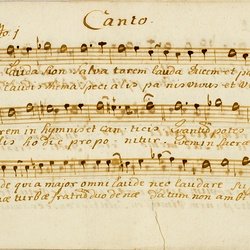 Canto.
No. 1
Lauda Sion Salva torem lauda Ducem et p
Laudis thema specialis panis vivus et v
rem in hymnis et can ticis Quantu potes
lis ho di e propo nitur. Quem in Sacra
de qui a major omni laude nec laudare su
nae turbae fratru duo denae Datum non amb